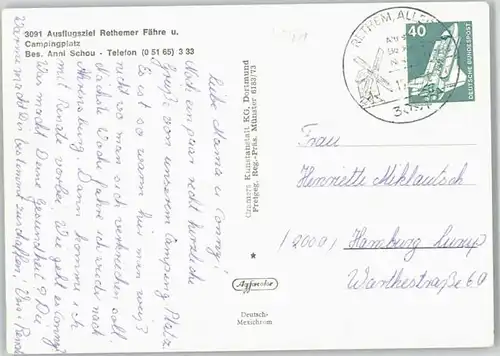 3091 Ausflugsziel Rethemer Fähre u.
Campingplatz
Bes. Anni Schou - Telefon (0 51 65) 3 33
Liebe Mama u. Conny!
Noch ein paar recht herzliche
Grüße von unserem Camping Platz
Es ist so warm hier man weiß
nicht wo man sich verkriechen soll.
Nächste Woche fahre ich wieder nach
Ahrensburg. Dann komme ich
mit Renate vorbei. Wie geht es Conny?
Was macht Deine Gesundheit? Die
Wärme macht Dir bestimmt zu schaffen! Uns. Renate
Cramers Kunstanstalt KG, Dortmund
Freigeg. Reg.-Präs. Münster 613/73
Agfacolor
Deutsch-
Mexichrom
RETHEM, ALLER
40
DEUTSCHE BUNDESPOST
Frau
Henriette Miklautsch
(2000) Hamburg
60